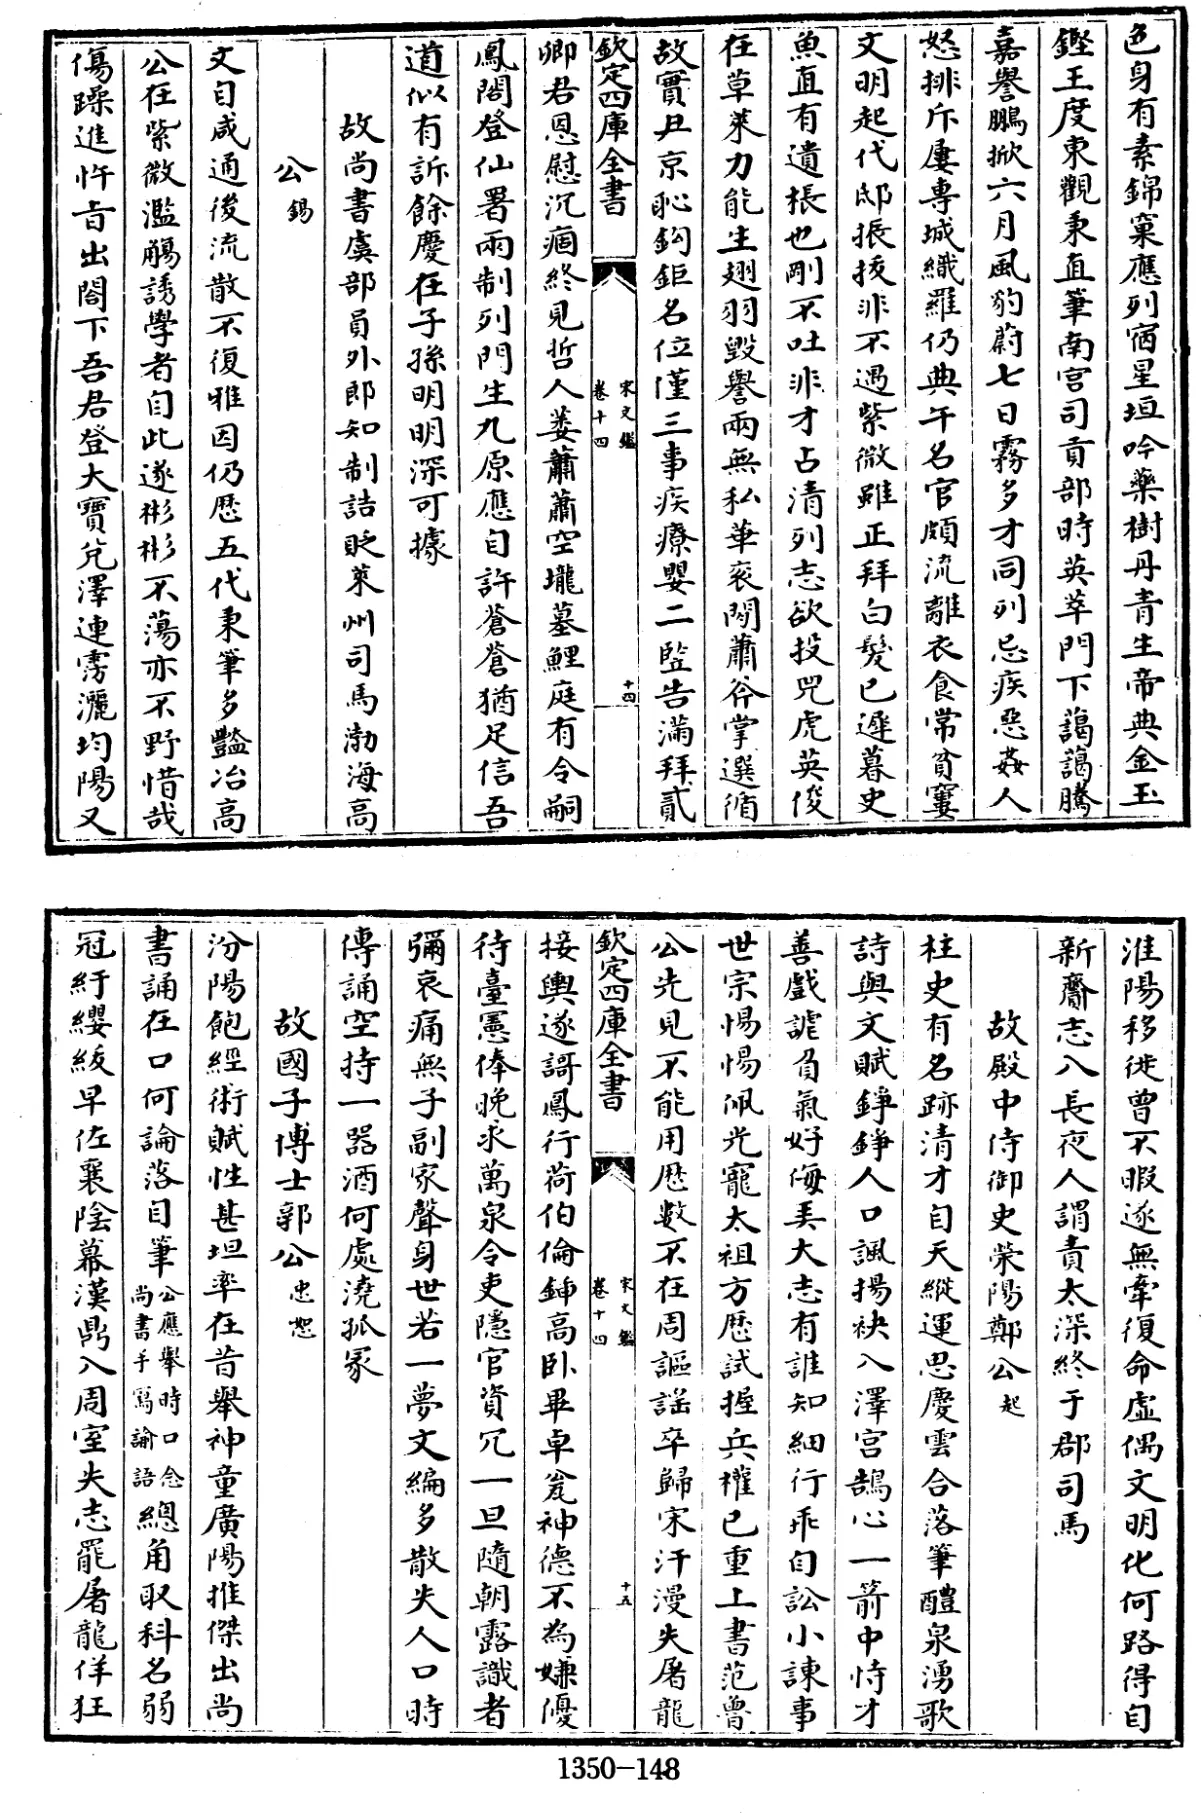 色身有素錦窠應列宿星垣吟藥樹丹青生帝典金玉
鏗王度東觀秉直筆南宮司貢部時英萃門下藹藹騰
嘉譽鵬掀六月風豹蔚七日霧多才同列忌疾惡姦人
怒排斥屢專城織羅仍典午名官頗流離衣食常貧窶
文明起代邸振拔非不遇紫微雖正拜白髮已遲暮史
魚直有遺棖也剛不吐非才占清列志欲投兕虎英俊
在草萊力能生翅羽毀譽兩無私華袞閒蕭斧掌選循
故實尹京恥鈎鉅名位僅三事疾療嬰二監告滿拜貳
欽定四庫全書
宋文鑑
卷十四
十四
卿君恩慰沉痼終見哲人萎蕭蕭空壠墓鯉庭有令嗣
鳳閣登仙署兩制列門生九原應自許蒼蒼猶足信吾
道似有訴餘慶在子孫明明深可據
故尚書虞部員外郎知制誥貶萊州司馬渤海高
公錫
文自咸通後流散不復雅因仍歷五代秉筆多豔冶高
公在紫微濫觴誘學者自此遂彬彬不蕩亦不野惜哉
傷躁進忤旨出閤下吾君登大寶兊澤連雱灑均陽又
淮陽移徙曾不暇遂無牽復命虛偶文明化何路得自
新齎志入長夜人謂責太深終于郡司馬
故殿中侍御史滎陽鄭公起
柱史有名跡清才自天縱運思慶雲合落筆醴泉湧歌
詩與文賦錚錚人口諷揚袂入澤宮鵠心一箭中恃才
善戲謔負氣好侮弄大志有誰知細行乖自訟小諫事
世宗惕惕佩光寵太祖方歷試握兵權已重上書范魯
公先見不能用歷數不在周謳謡卒歸宋汗漫失屠龍
欽定四庫全書
宋文鑑
卷十四
十五
接輿遂謌鳳行荷伯倫鍤高臥畢卓瓮神德不為嫌優
待臺憲俸晚求萬泉令吏隱官資冗一旦隨朝露識者
彌哀痛無子副家聲身世若一夢文編多散失人口時
傳誦空持一器酒何處澆孤冢
故國子博士郭公忠恕
汾陽飽經術賦性甚坦率在昔舉神童廣陽推傑出尚
書誦在口何論落自筆公應舉時口念尚書手寫論語總角取科名弱
冠紆纓緌早佐襄陰幕漢鼎入周室失志罷屠龍佯狂
1350-148